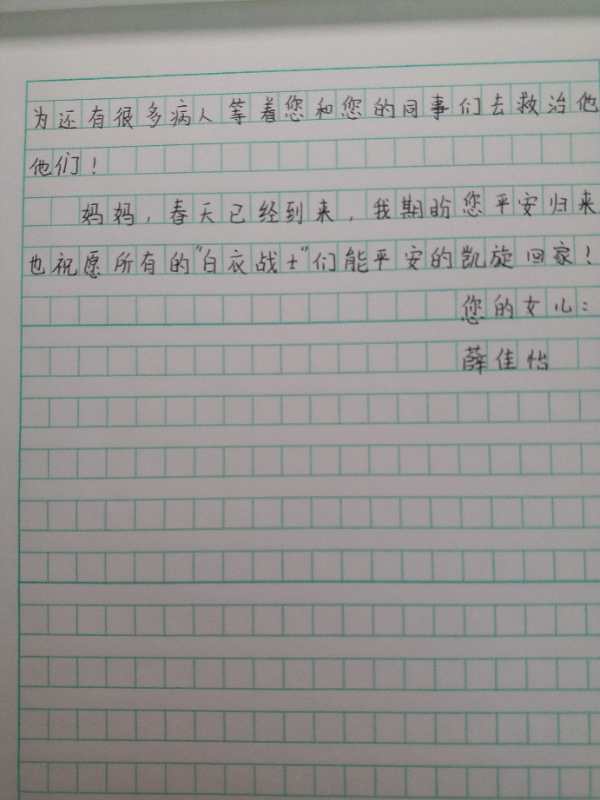 为还有很多病人等着您和您的同事们去救治他
他们！
妈妈，春天已经到来，我期盼您平安归来
也祝愿所有的“白衣战士”们能平安的凯旋回家！
您的女儿：
薛佳怡